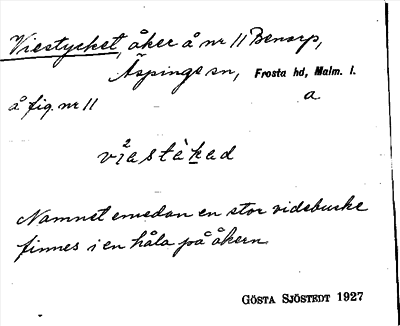 Viestycket, åker å nr 11 Benarp,
Äspinge sn, Frosta hd, Malm. l.
å fig. nr 11 a.
Namnet emedan en stor videbuske
finnes i en håla på åkern
GÖSTA SJÖSTEDT 1927